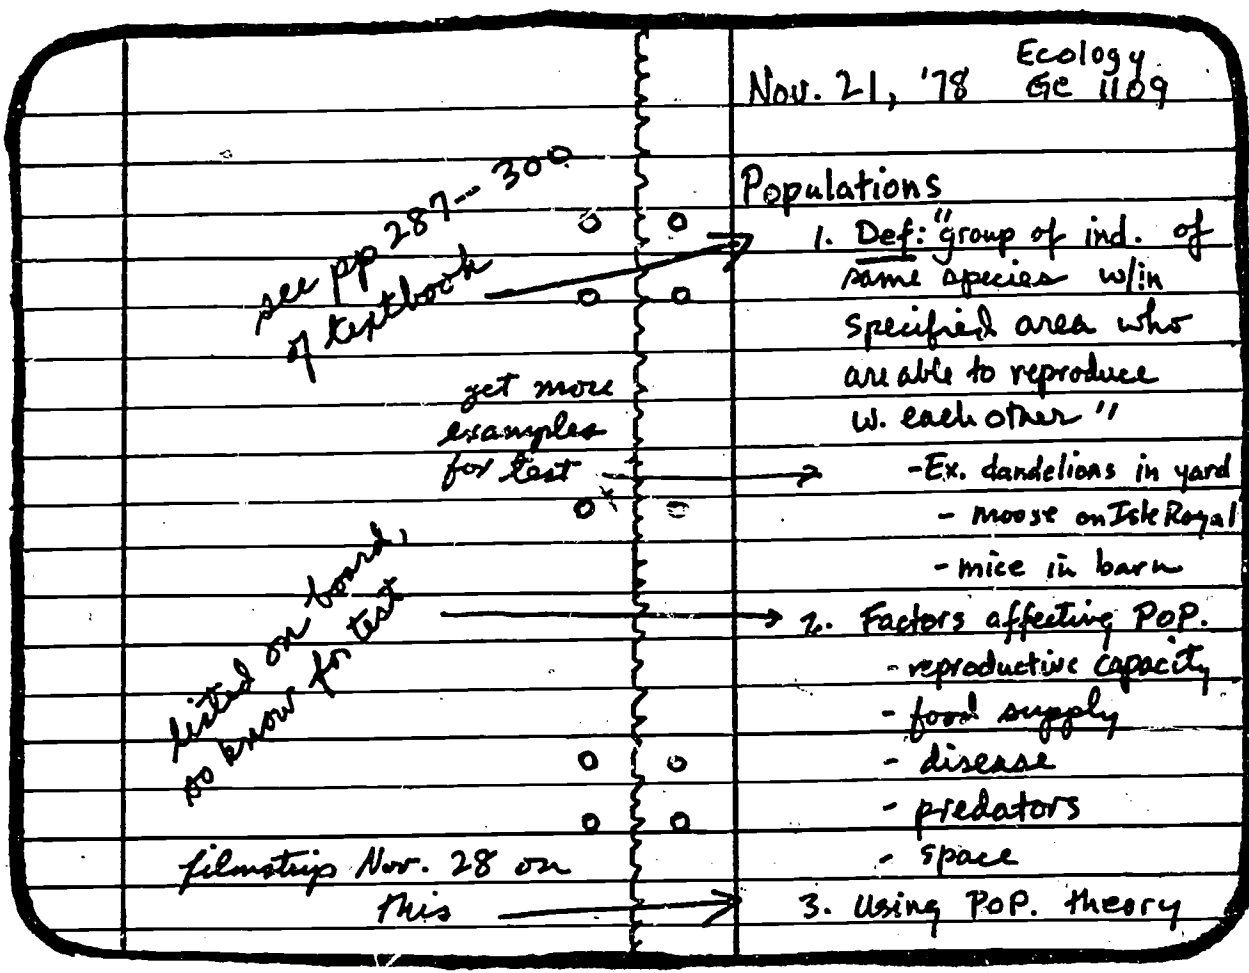 see pp 287-- 300
of textbook
get more
examples
for test
listed on board,
so know for test
filmstrip Nov. 28 on
this
Ecology
Nov. 21, '78 GC 1109
Populations
1. Def: "group of ind. of
same species w/in
specified area who
are able to reproduce
w. each other"
-Ex. dandelions in yard
- moose on Isle Royal
- mice in barn
2. Factors affecting POP.
- reproductive capacity
- food supply
- disease
- predators
- space
3. Using POP. theory